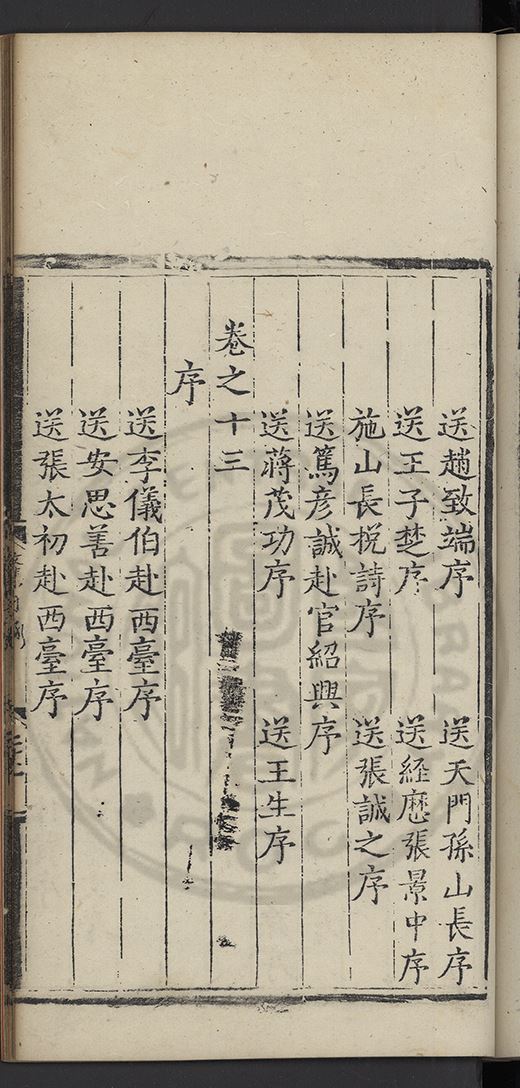 送趙致端序　送天門孫山長序
送王子楚序　送經歷張景中序
施山長梲詩序　送張誠之序
送篤彥誠赴官紹興序
送蔣茂功序　送王生序
卷之十三
序
送李儀伯赴西臺序
送安思善赴西臺序
送張太初赴西臺序